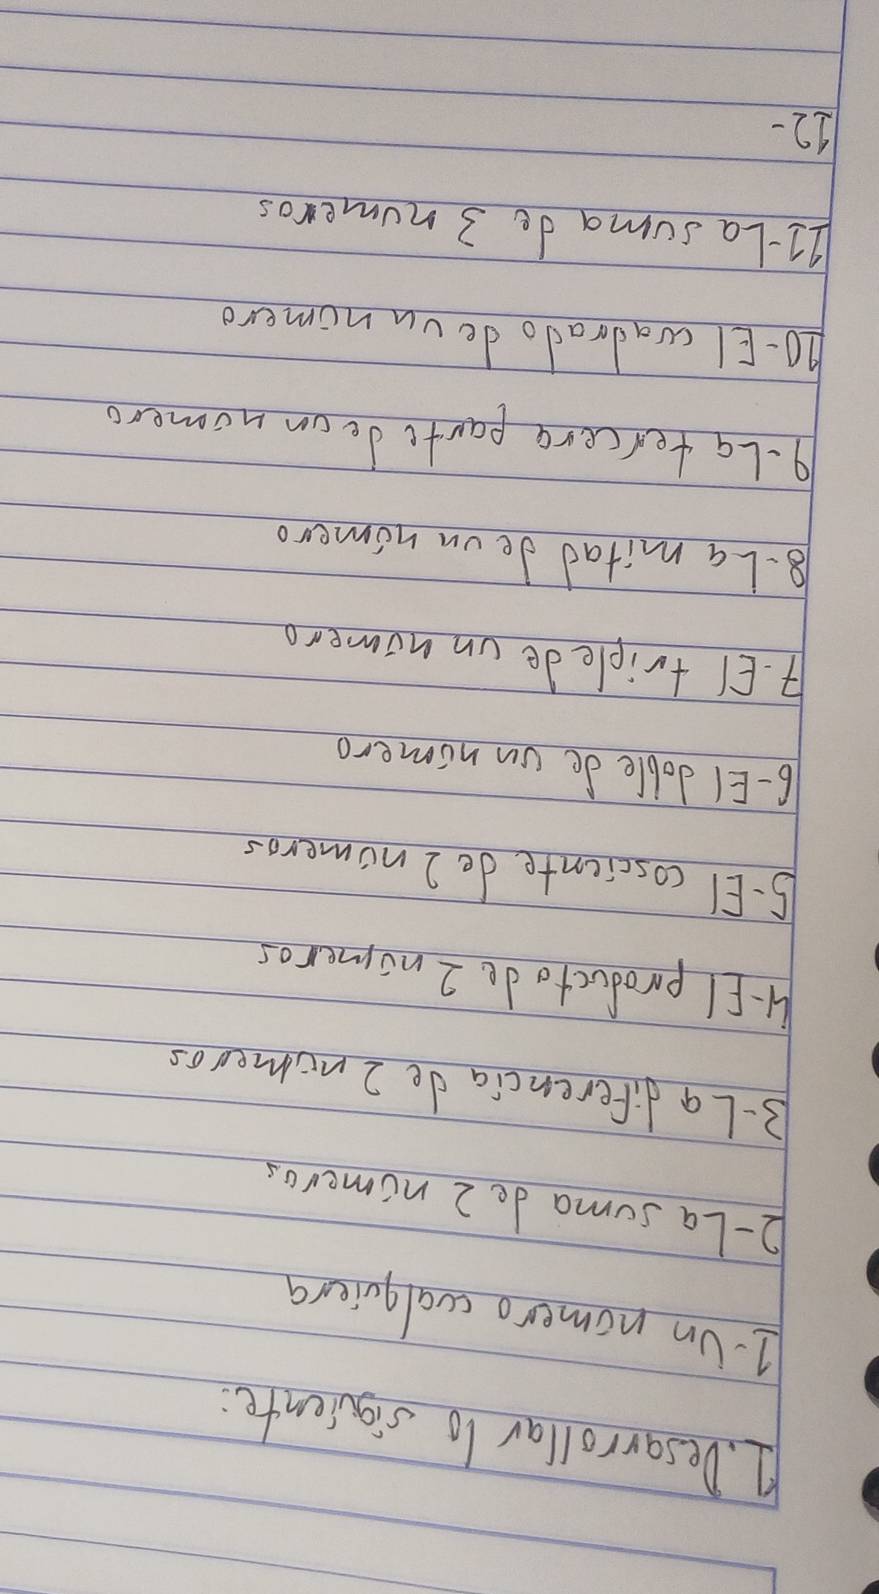 1. Desarrollar lo siguiente:
1-Un número cualquiera
2-La suma de 2 números
3-La diferencia de 2 números
4-El producto de 2 números
5-El cosciente de 2 números
6-El doble de un número
7-El triple de un número
8-La mitad de un número
9-La tercera parte de un número
10-El cuadrado de un número
11-La suma de 3 números
12-